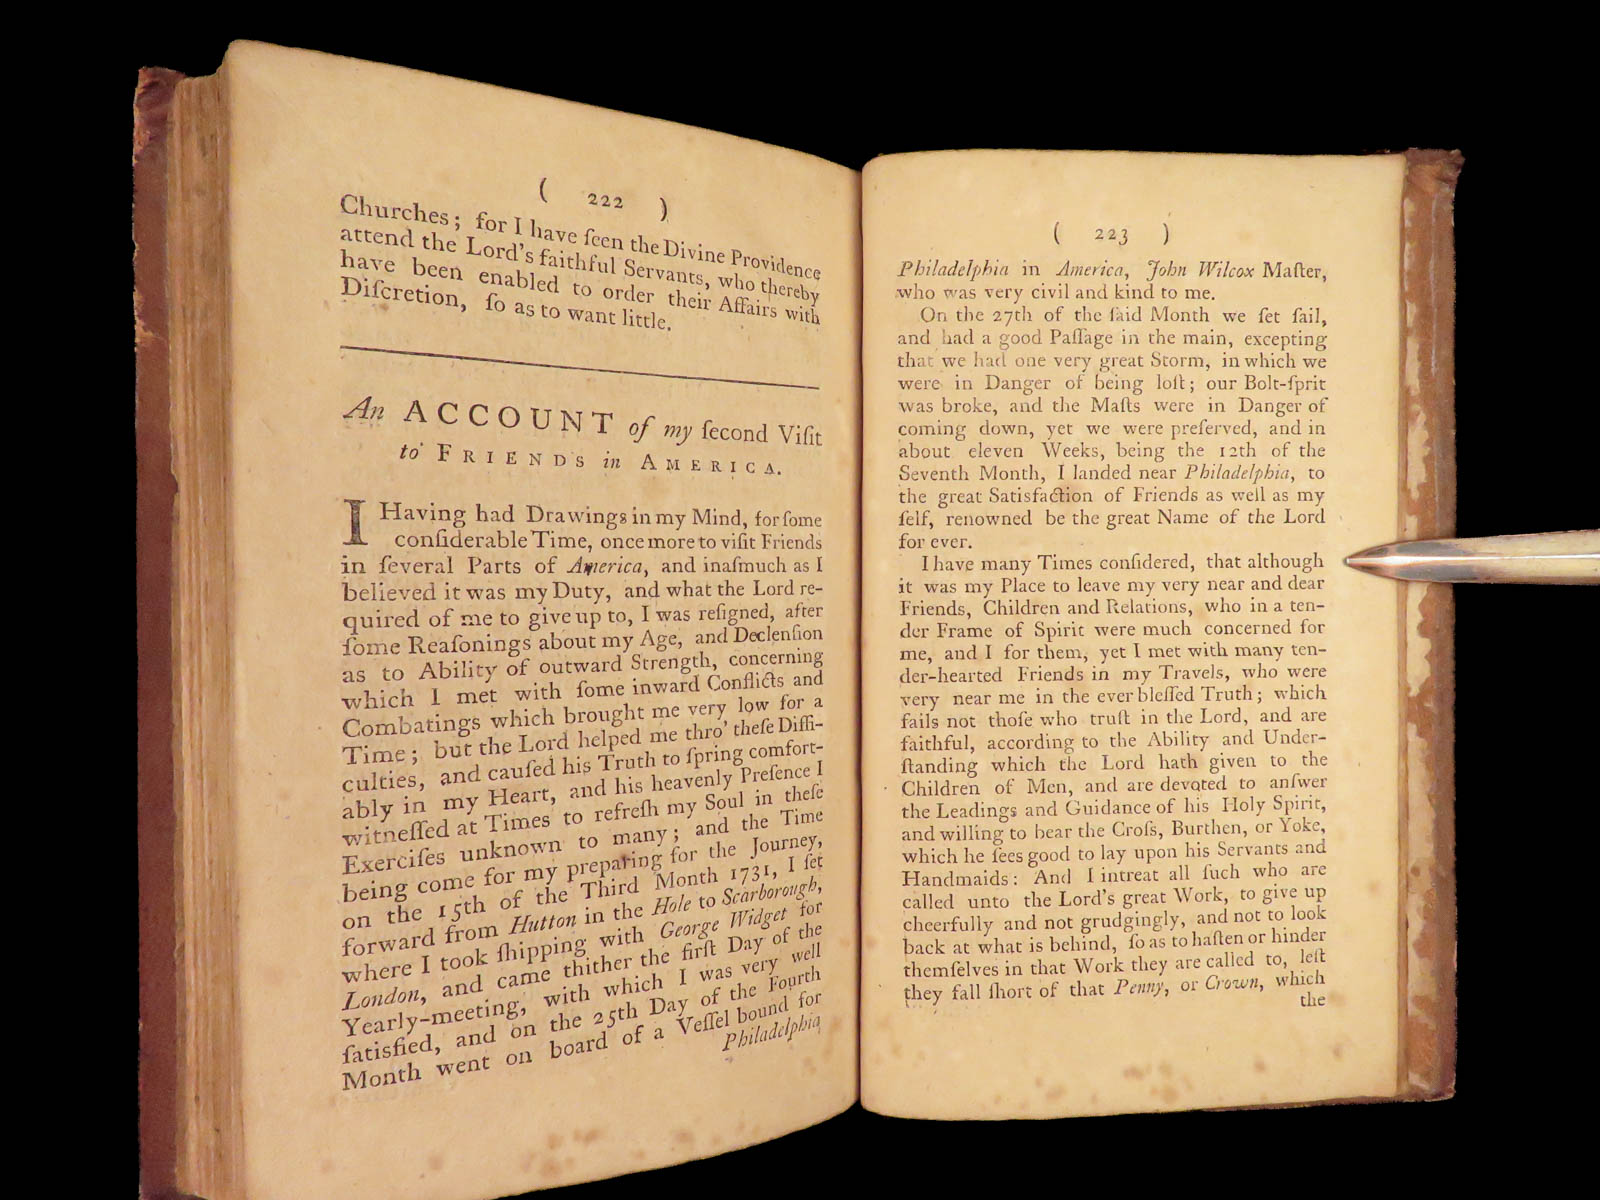 ( 222 )
Churches; for I have ſeen the Divine Providence
attend the Lord's faithful Servants, who thereby
have been enabled to order their Affairs with
Diſcretion, ſo as to want little.
An ACCOUNT of my ſecond Viſit
to FRIENDS in AMERICA.
I Having had Drawings in my Mind, for ſome
conſiderable Time, once more to viſit Friends
in ſeveral Parts of America, and inaſmuch as I
believed it was my Duty, and what the Lord re-
quired of me to give up to, I was reſigned, after
ſome Reaſonings about my Age, and Declenſion
as to Ability of outward Strength, concerning
which I met with ſome inward Conflicts and
Combatings which brought me very low for a
Time; but the Lord helped me thro' theſe Diffi-
culties, and cauſed his Truth to ſpring comfort-
ably in my Heart, and his heavenly Preſence I
witneſſed at Times to refreſh my Soul in theſe
Exerciſes unknown to many; and the Time
being come for my preparing for the Journey,
on the 15th of the Third Month 1731, I ſet
forward from Hutton in the Hole to Scarborough,
where I took ſhipping with George Widget for
London, and came thither the firſt Day of the
Yearly-meeting, with which I was very well
ſatisfied, and on the 25th Day of the Fourth
Month went on board of a Veſſel bound for
Philadelphia
( 223 )
Philadelphia in America, John Wilcox Maſter,
who was very civil and kind to me.
On the 27th of the ſaid Month we ſet ſail,
and had a good Paſſage in the main, excepting
that we had one very great Storm, in which we
were in Danger of being loſt; our Bolt-ſprit
was broke, and the Maſts were in Danger of
coming down, yet we were preſerved, and in
about eleven Weeks, being the 12th of the
Seventh Month, I landed near Philadelphia, to
the great Satisfaction of Friends as well as my
ſelf, renowned be the great Name of the Lord
for ever.
I have many Times conſidered, that although
it was my Place to leave my very near and dear
Friends, Children and Relations, who in a ten-
der Frame of Spirit were much concerned for
me, and I for them, yet I met with many ten-
der-hearted Friends in my Travels, who were
very near me in the ever bleſſed Truth; which
fails not thoſe who truſt in the Lord, and are
faithful, according to the Ability and Under-
ſtanding which the Lord hath given to the
Children of Men, and are devoted to anſwer
the Leadings and Guidance of his Holy Spirit,
and willing to bear the Croſs, Burthen, or Yoke,
which he ſees good to lay upon his Servants and
Handmaids: And I intreat all ſuch who are
called unto the Lord's great Work, to give up
cheerfully and not grudgingly, and not to look
back at what is behind, ſo as to haſten or hinder
themſelves in that Work they are called to, leſt
they fall ſhort of that Penny, or Crown, which
the